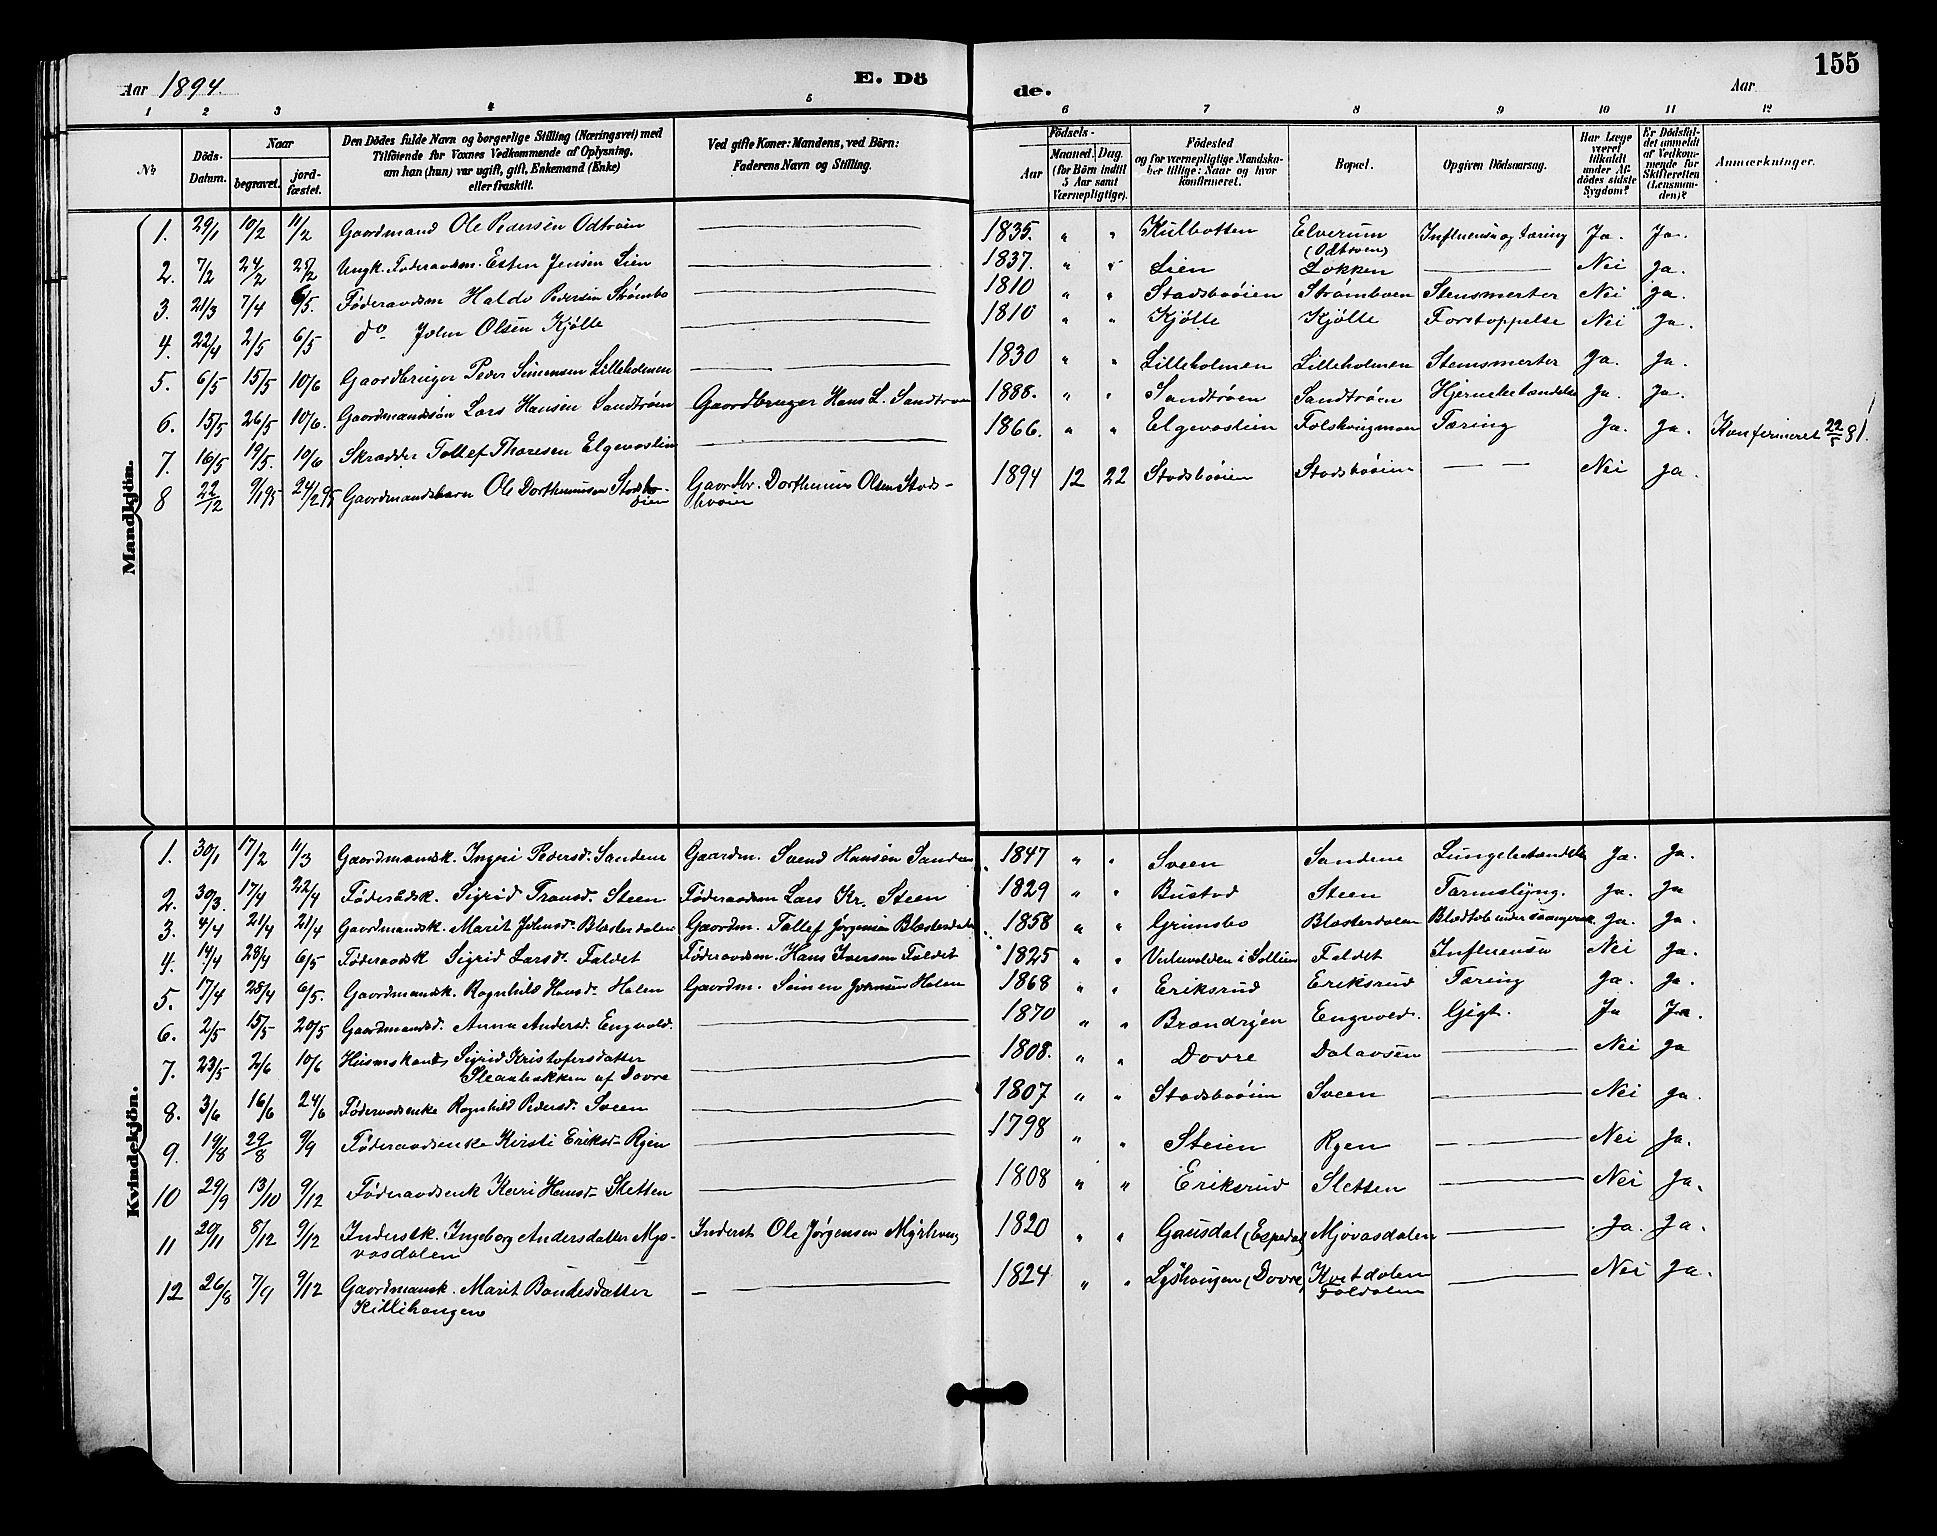 Aar 1894. E. Dö de. Aar 155
1 2 3 4 5 6 7 8 9 10 11 12
No
Döds-Datum.
Naar
begravet.
jord-fæstet.
Den Dödes fulde Navn og borgerlige Stilling (Næringsvei) med
Tilföiende for Voxnes Vedkommende af Oplysning,
om han (hun) var ugift, gift, Enkemand (Enke)
eller fraskilt.
Ved gifte Koner: Mandens, ved Börn:
Faderens Navn og Stilling.
Födsels-
Aar
Maaned. Dag.
(for Börn indtil
5 Aar samt
Værnepligtige).
Födested
og for værnepligtige Mandska-
ber tillige: Naar og hvor
konfirmeret.
Bopæl.
Opgiven Dödsaarsag.
Har Læge
været
tilkaldt
under Af-
dödes sidste
Sygdom?
Er Dödsfal-
det anmeldt
af Vedkom-
mende for
Skifteretten
(Lensman-
den)?
Anmærkninger.
Mandkjön.
1. 29/1 10/2 11/2 Gaardmand Ole Pedersen Odtrøen 1835. " " Kulbotten Elverum (Odtroen) Influensa og Tæring Ja. Ja.
2. 7/2 24/2 25/2 Ungk. Føderaadsm. Esten Jensen Lien 1837. " " Lien Løkken Nei ja.
3. 21/3 7/4 6/5. Føderaadsm Haldo Pedersen Strømbo 1810 " " Stadsbøien Strømboen Stensmerter Nei ja.
4. 22/4 2/5 6/5 do John Olsen Kjølle 1810 " " Kjølle Kjølle Forstoppelse Nei Ja.
5. 6/5 15/5 10/6 Gaardbruger Peder Simensen Lilleholmen 1830 " " Lilleholmen Lilleholmen Stensmerter Ja. Ja.
6. 15/5 26/5 10/6. Gaardmandssøn Lars Hansen Sandtrøen Gaardbruger Hans L. Sandtrøen 1888. " " Sandtrøen Sandtrøen Hjernebetændelse Ja. Ja.
7. 16/5 19/5. 10/6 Skrædder Tollef Thoresen Elgevaslien 1866. " " Elgevaslien Tæring Ja. Ja. Konfirmeret 22/5 81.
8 22/12 9/1 95 24/2 95 Gaardmandsbarn Ole Dorthemusen Stadsbøien Gaardbr. Dorthemus Olsen Stads-
bøien 1894 12 22 Stadsbøien Stadsbøien Nei Ja.
Kvindekjön.
1. 30/1 17/2 11/3 Gaardmandsk. Ingri Pedersd. Sandene Gaardm. Svend Hansen Sandene 1847 " " Sveen Sandene Lungebetændelse Ja. Ja.
2. 30/3. 17/4 22/4 Føderådsk. Sigrid Transd. Steen Føderaadsm Lars Kr. Steen 1829 " " Bustad Steen Tarmslyng. Ja. Ja
3. 4/4 21/4 21/4 Gaardmandsk. Marit Johnsd. Blæsterdalen Gaardm. Tollef Jørgensen Blæsterdalen 1858 " " Grimsbo Blæsterdalen Blodtab under Ja. Ja.
4. 14/4 28/4 6/5 Føderaadsk Sigrid Larsd. Faldet Føderaadsm. Hans Iversen Faldet 1825 " " i Sollien Faldet Influensa Nei Ja.
5. 17/4 28/4 6/5. Gaardmandsk. Ragnhild Hansd. Holen Gaardm. Simen Holen 1868 " " Eriksrud Eriksrud Tæring Ja. Ja.
6. 2/5 15/5 20/5 Gaardmandsd. Anna Andersd. Engvold. 1870 " " Brændryen Engvold. Gigt. Ja Ja
7. 23/5 2/6 10/6 Husmskone Sigrid Kristofersdatter
Sleanbakken af Dovre 1808. " " Dovre Dalaasen Nei Ja
8. 3/6 16/6 24/6 Føderaadsenke Ragnhild Pedersd. Sveen 1807 " " Stadsbøien Sveen Nei Ja.
9. 19/8 29/8 9/9 Føderaadsenke Kirsti Eriksd. Ryen 1798 " " Steien Ryen Nei Ja.
10 29/9 13/10 9/12 Føderaadsenk Kari Hansd. Sletten 1808 " " Eriksrud Sletten Nei Ja.
11 20/11 8/12 9/12 Inderstk. Ingeborg Andersdatter Mjo-
vasdalen Inderst Ole Jørgensen 1820 " " Gausdal (Espedal) Mjovasdalen Ja. Ja.
12 26/8 7/9 9/12 Gaardmansk. Marit Baardesdatter
Killihaugen 1824 " " Lyshaugen (Dovre) Kvitdalen
Foldalen Nei Ja.